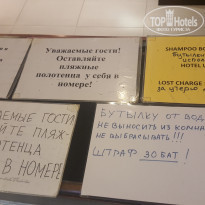 TOP Hotels
Уважаемые гости!
Оставляйте
пляжные
полотенца у себя в
номере!
SHAMPOO BO
HOTEL L
LOST CHARGE
ЕМЫЕ ГОСТИ
ЙТЕ ПЛЯЖ-
ТЕНЦА
В НОМЕРЕ!
БУТЫЛКУ ОТ ВОД
НЕ ВЫНОСИТЬ ИЗ КОМНА
НЕ ВЫБРАСЫВАТЬ!!!
ШТРАФ 30 БАТ!